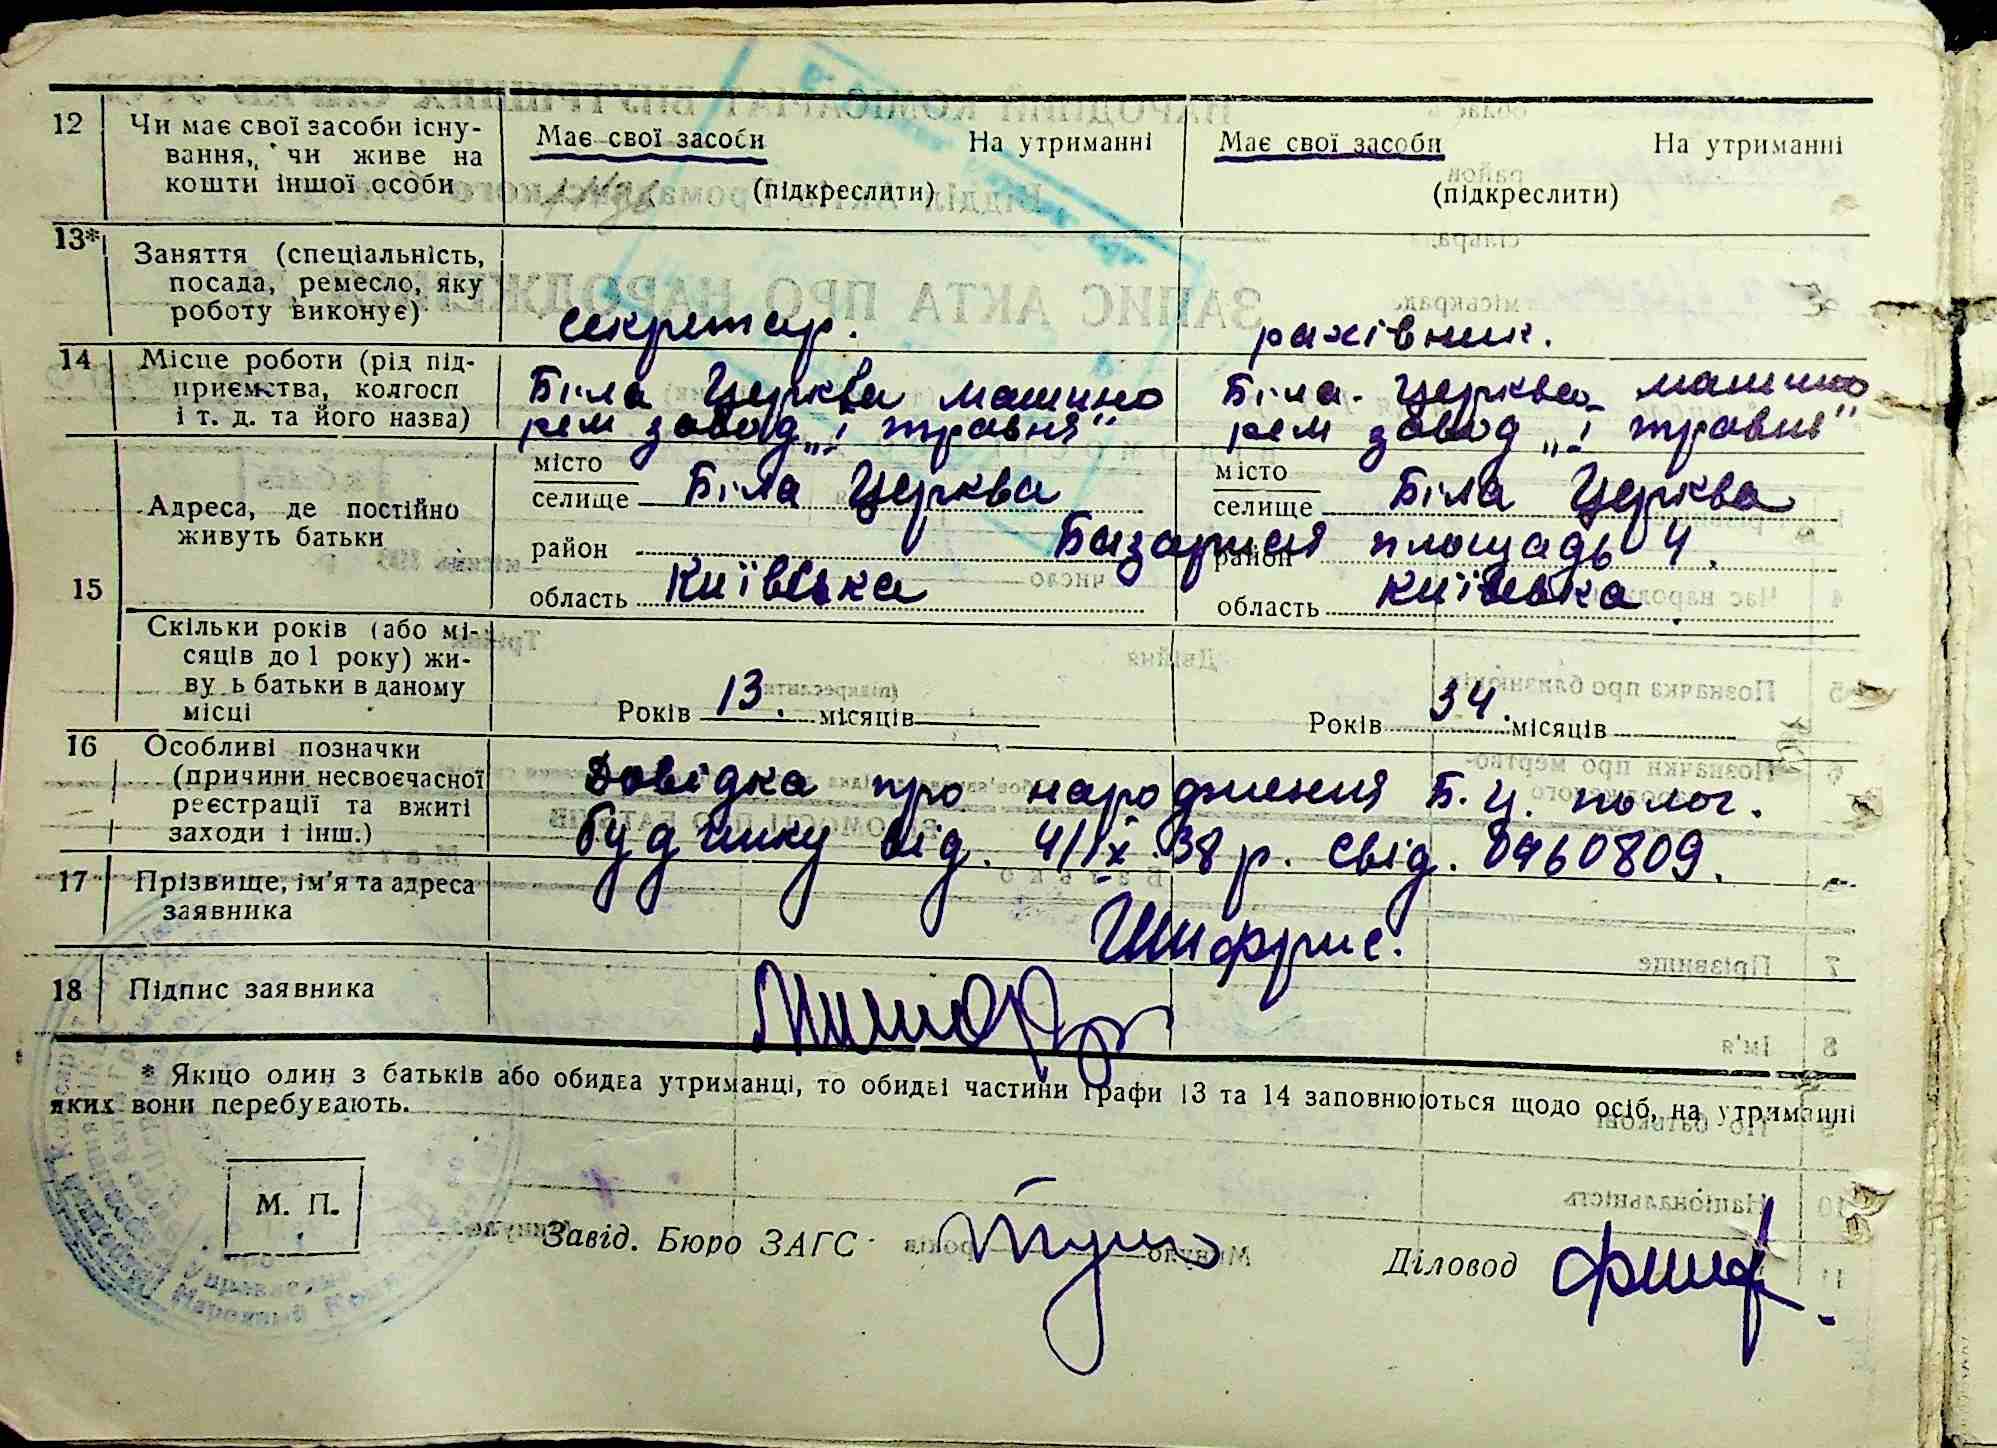 12 Чи має свої засоби існу- Має свої засоби На утриманні Має свої засоби На утриманні
вання, чи живе на
кошти іншої особи (підкреслити) (підкреслити)
13* Заняття (спеціальність,
посада, ремесло, яку
роботу виконує) секретар. рахівник.
14 Місце роботи (рід під- Біла Церква машино Біла Церква машино
приємства, колгосп рем завод „1 травня“ рем завод „1 травня“
і т. д. та його назва)
15 Адреса, де постійно
живуть батьки
місто місто
селище Біла Церква селище Біла Церква
район Базарная площадь 4. район
область Київська область Київська
Скільки років (або мі-
сяців до 1 року) жи-
ву ь батьки в даному
місці Років 13. місяців Років 34. місяців
16 Особливі позначки
(причини несвоєчасної Довідка про народження Б.Ц. полог.
реєстрації та вжиті
заходи і інш.) будинку від. 4/IX.38 р. свід. 0960809.
17 Прізвище, ім'я та адреса
заявника Шифрис.
18 Підпис заявника
* Якщо один з батьків або обидва утриманці, то обидві частини графи 13 та 14 заповнюються щодо осіб, на утриманні
яких вони перебувають.
М. П.
Завід. Бюро ЗАГС Діловод